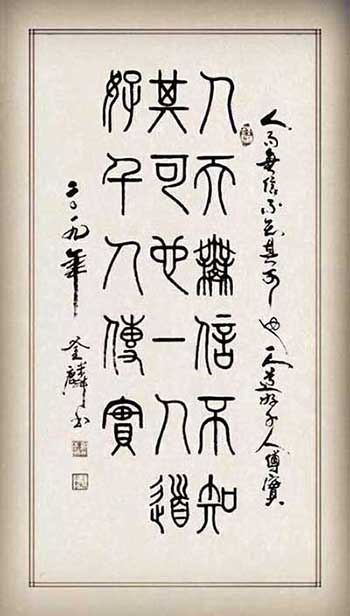 人而無信不知其可也一人道好千人傳實
人而無信不知
其可也一人道
好千人傳實
二〇一九年
麟书